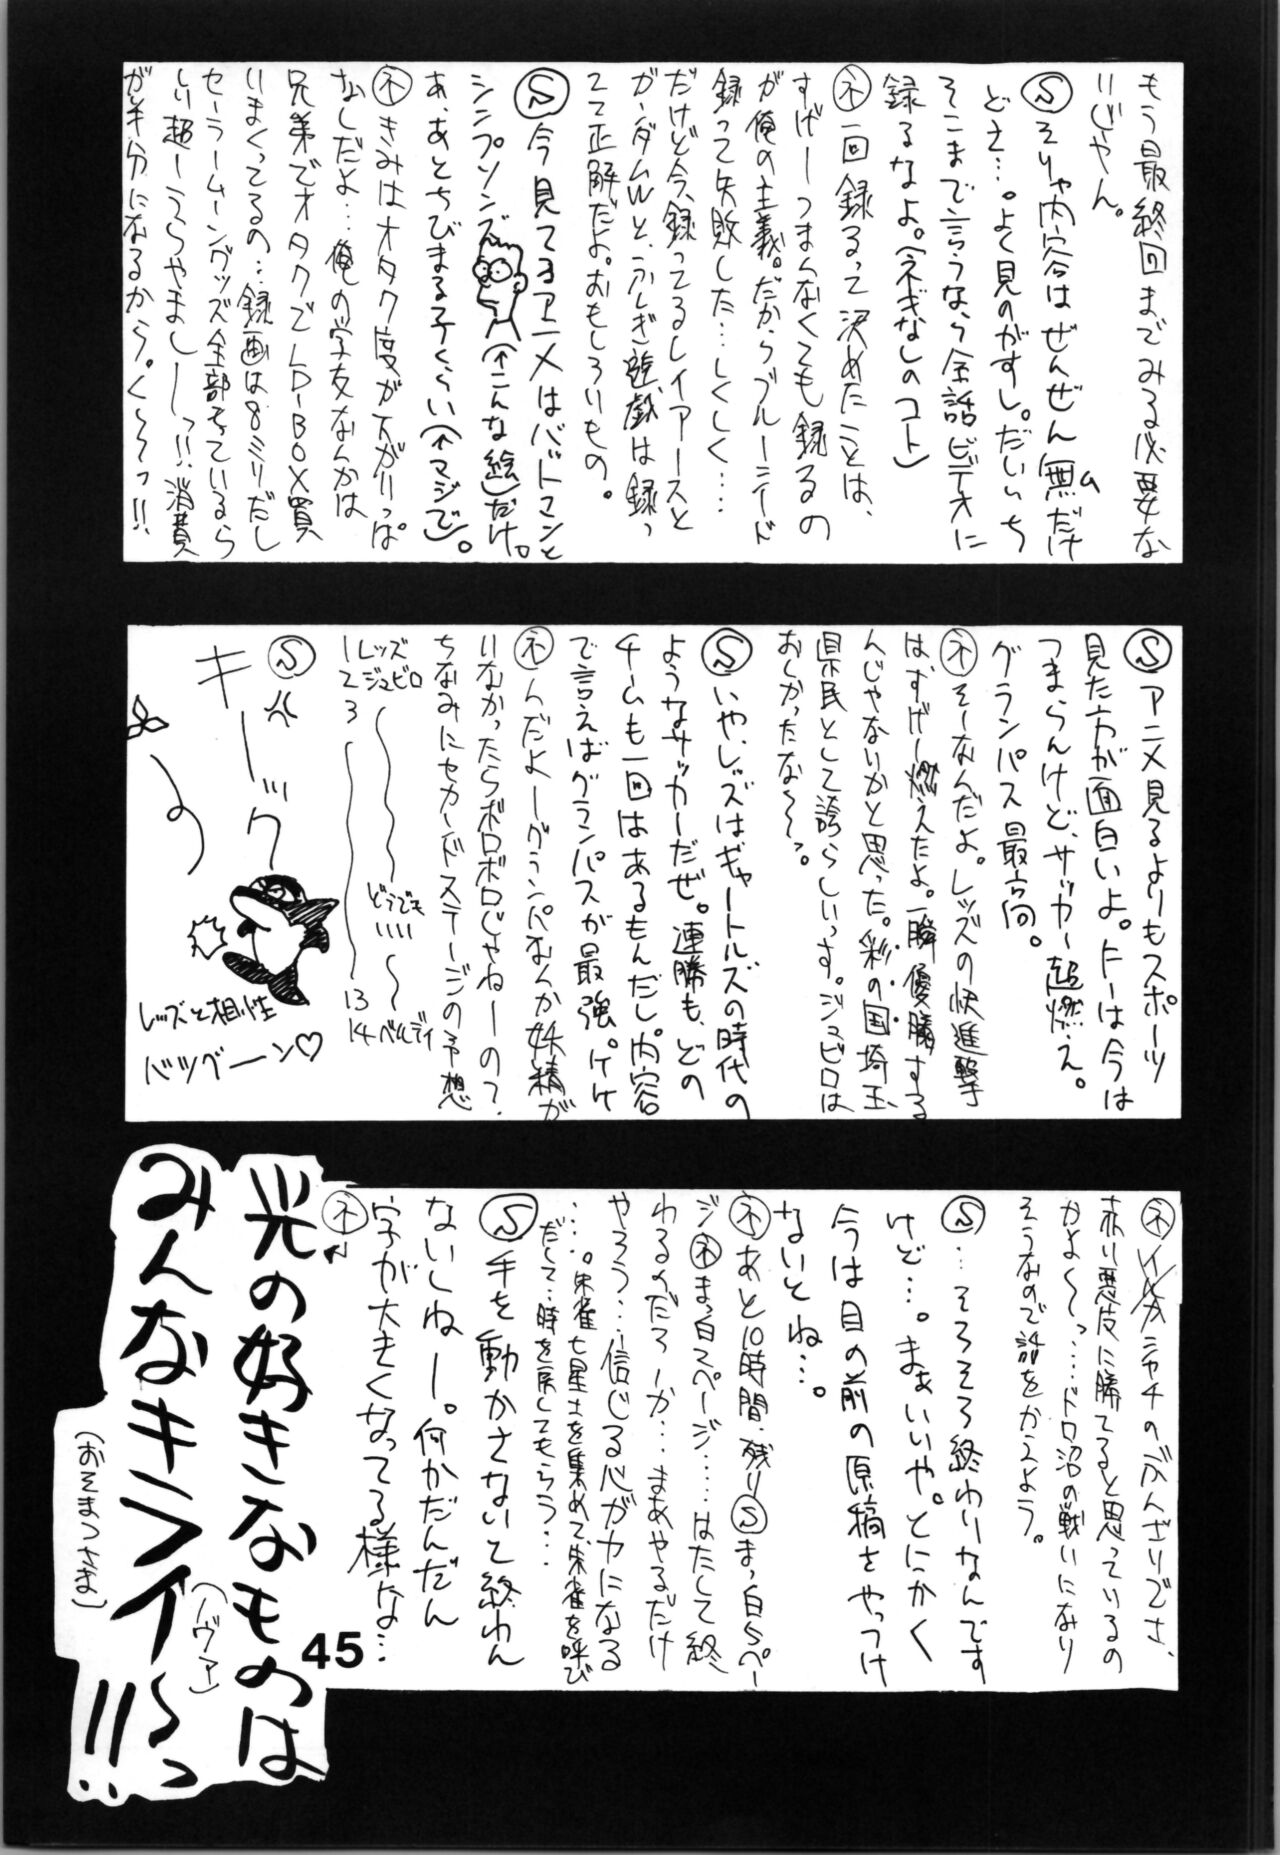 もう最終回までみる必要な
いじゃん。
Ⓢそりゃ内容はぜんぜん無だけ
ム
どさ…。よく見のがすし。だいいち
そこまで言うなら全話ビデオに
録るなよ。(ネギなしのコト)
ネ一回録るって決めたことは、
すげーつまんなくても録るの
が俺の主義。だからブルーシード
録って失敗した…しくしく‥‥
だけど今、録ってるレイアースと
ガンダムWと、ふしぎ遊戯は録っ
てて正解だよ。おもしろいもの。
Ⓢ今見てるアニメはバットマンと
シンプソンズ(↑こんな絵)だけ。
あ、あとちびまる子くらい(↑マジで)。
ネきみはオタク度が下がりっぱ
なしだよ…俺の学友なんかは
兄弟でオタクでLD-BOX買
いまくってるの…録画は8ミリだし
セーラームーングッズ全部もっているら
しい超ーうらやましーーっ!!消費
が半分になるから。く〜〜っ!!
Ⓢアニメ見るよりもスポーツ
見た方が面白いよ。トーは今は
つまらんけど、サッカー超燃え。
グランパス最高。
ネそーなんだよ。レッズの快進撃
は、すげー燃えたよ。一瞬優勝する
んじゃないかと思った。彩の国埼玉、
県民として誇らしいっす。ジュビロは
おしかったな〜〜っ。
Ⓢいや、レッズはギャートルズの時代の
ようなサッカーだぜ。連勝も、どの
チームも一回はあるもんだし、内容
で言えばグランパスが最強。ケケ
ネんだよーグランパなんか妖精が
いなかったらボロボロじゃねーの?
ちなみにセカンドステージの予想
1 レッズ
2 ジュビロ
3
どうでも
いい
13
14 ベルディ
Ⓢ
キーーック
レッズと相性
バツグーーン♡
ネシャチのぶんざいでさ、
赤い悪魔に勝てると思っているの
かよ〜っ‥‥ドロ沼の戦いになり
そうなので話をかえよう。
Ⓢ…そろそろ終わりなんです
けど…。まぁいいや。とにかく
今は目の前の原稿をやっつけ
ないとね…。
ネあと10時間、残りⓈまっ白5ペー
ジネまっ白スページ……はたして終
わるのだろーか…まあやるだけ
やろう…信じる心が力になる
……。朱雀七星士を集めて朱雀を呼び
だして…時を戻してもらう…
Ⓢ手を動かさないで終わん
ないしねー。何かだんだん
字が大きくなってる様な…
ネ
光の好きなものは
みんなキライ〜っ!!
(ノヴァ)
(おそまつさま)
45